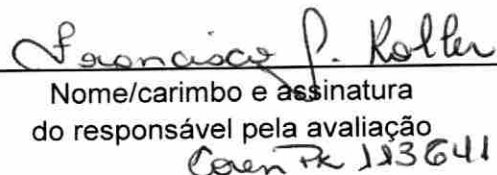 Francisco P. Koller
Nome/carimbo e assinatura
do responsável pela avaliação
Coren PR 113641